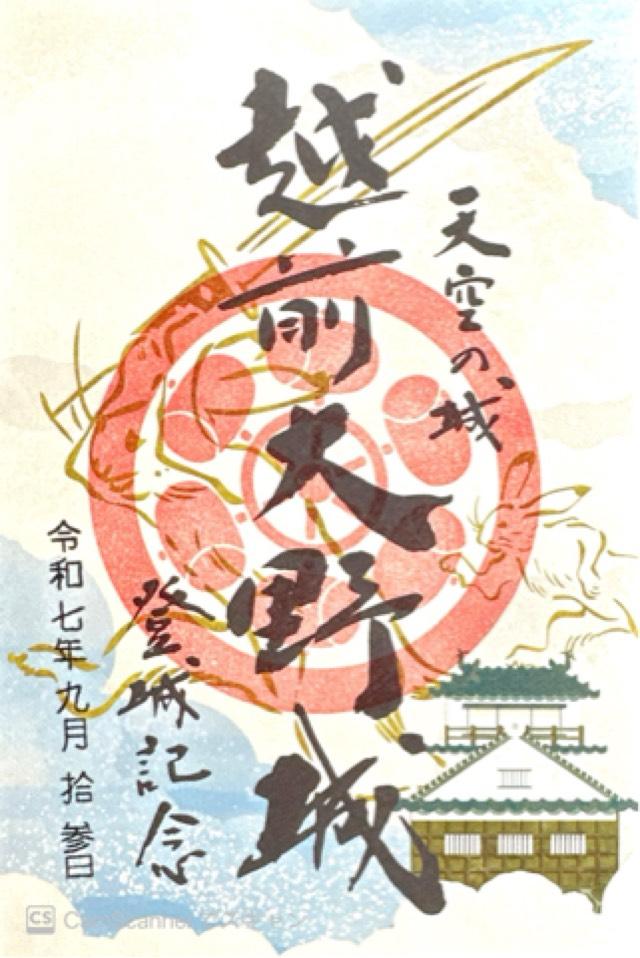 天空の城
越前大野城
登城記念
令和七年九月拾参日
CS CamScanner でスキャン